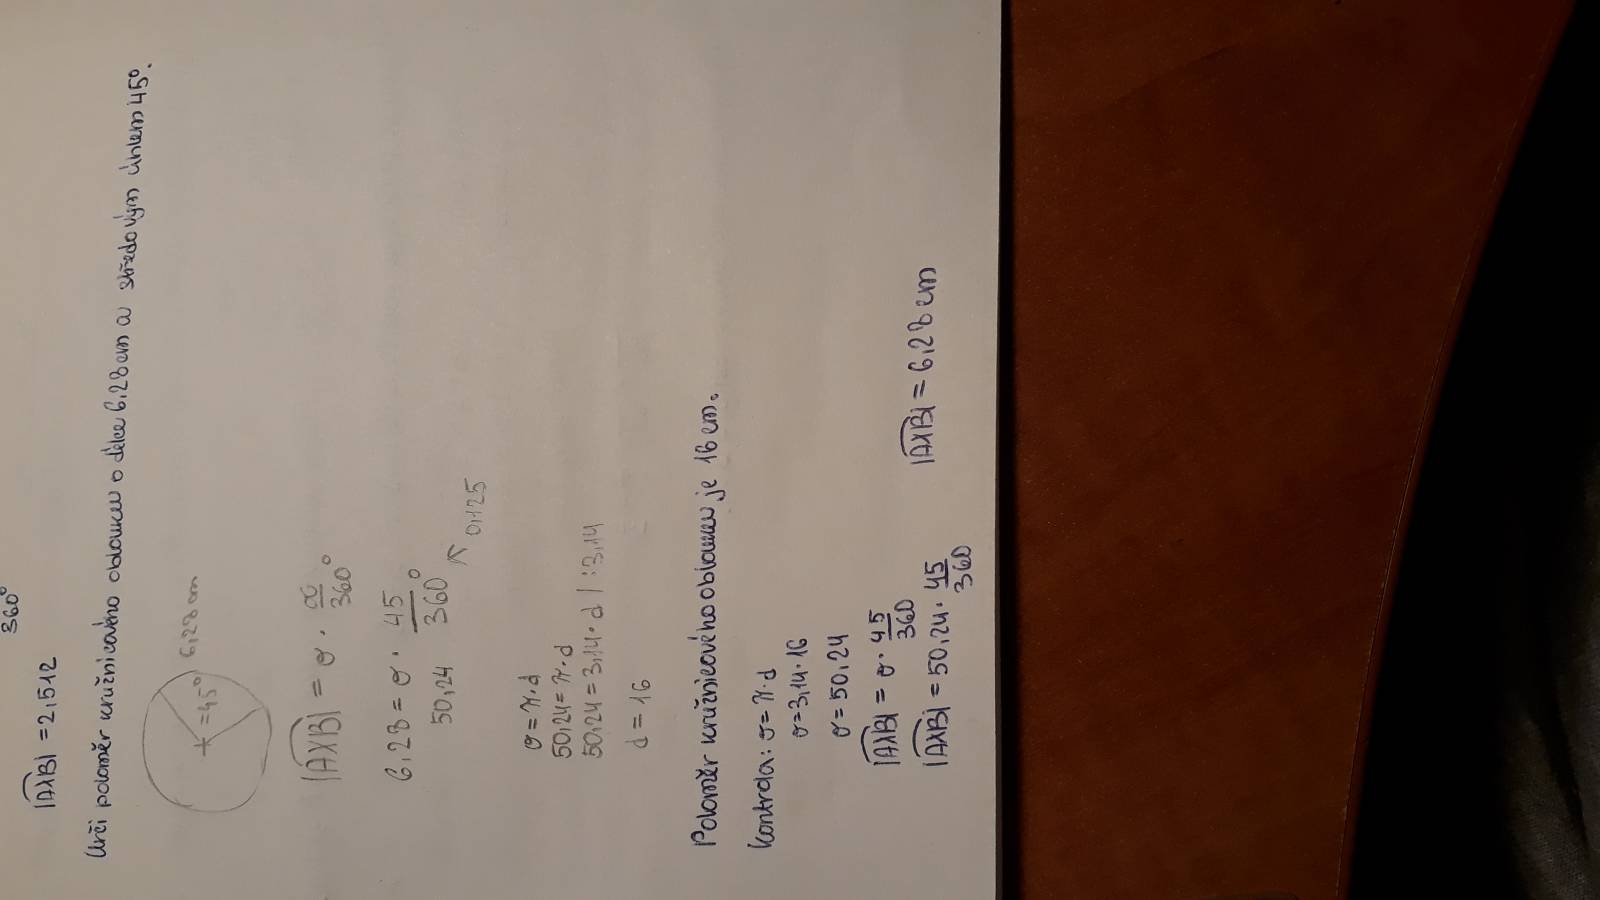 360°
|AXB| = 2,512
Urči poloměr kružnicového oblouku o délce 6,28 cm a středovým úhlem 45°.
= 45°
6,28 cm
|AXB| = o · α/360°
6,28 = o · 45/360°
50,24
0,125
o = π·d
50,24 = π·d
50,24 = 3,14·d | :3,14
d = 16
Poloměr kružnicového oblouku je 16 cm.
Kontrola: o = π·d
o = 3,14·16
o = 50,24
|AXB| = o · 45/360
|AXB| = 50,24 · 45/360
|AXB| = 6,28 cm